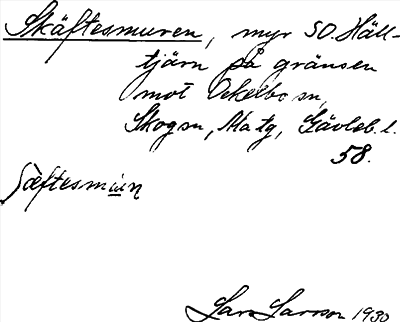 Skäftesmuren, myr SO. Häll-
tjärn på gränsen
mot Ockelbo sn,
Skogsn, Matg, Gävleb. l.
58.
ʃäftesmuɪn
Lars Larsson 1930